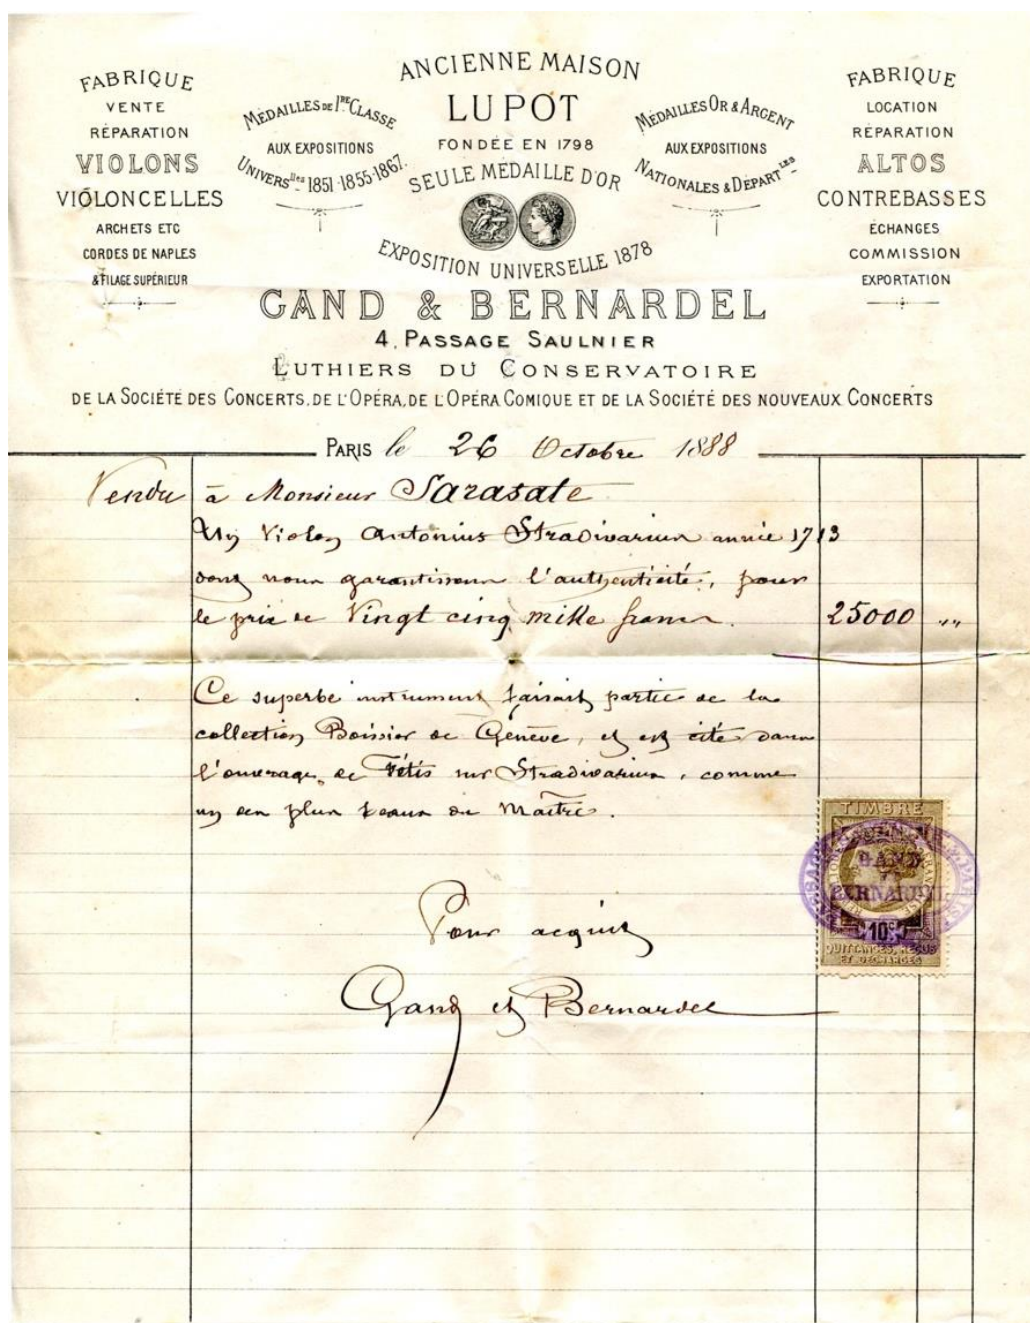 FABRIQUE
VENTE
RÉPARATION
VIOLONS
VIOLONCELLES
ARCHETS ETC
CORDES DE NAPLES
& FILAGE SUPÉRIEUR
MÉDAILLES DE 1RE CLASSE
AUX EXPOSITIONS
UNIVERSlles 1851-1855-1867.
ANCIENNE MAISON
LUPOT
FONDÉE EN 1798
SEULE MÉDAILLE D'OR
EXPOSITION UNIVERSELLE 1878
MÉDAILLES OR & ARGENT
AUX EXPOSITIONS
NATIONALES & DÉPARTles
FABRIQUE
LOCATION
RÉPARATION
ALTOS
CONTREBASSES
ÉCHANGES
COMMISSION
EXPORTATION
GAND & BERNARDEL
4, PASSAGE SAULNIER
LUTHIERS DU CONSERVATOIRE
DE LA SOCIÉTÉ DES CONCERTS, DE L'OPÉRA, DE L'OPÉRA COMIQUE ET DE LA SOCIÉTÉ DES NOUVEAUX CONCERTS
PARIS le 26 Octobre 1888
Vendu à Monsieur Sarasate
Un Violon Antonius Stradivarius année 1713
dont nous garantissons l'authenticité, pour
le prix de Vingt cinq mille francs. 25000 "
Ce superbe instrument faisait partie de la
collection Boissier de Genève, et est cité dans
l'ouvrage de Fétis sur Stradivarius, comme
un des plus beaux du Maître.
TIMBRE
GAND
BERNARDEL
10c
QUITTANCES, REÇUS
ET DÉCHARGES
Pour acquit
Gand et Bernardel